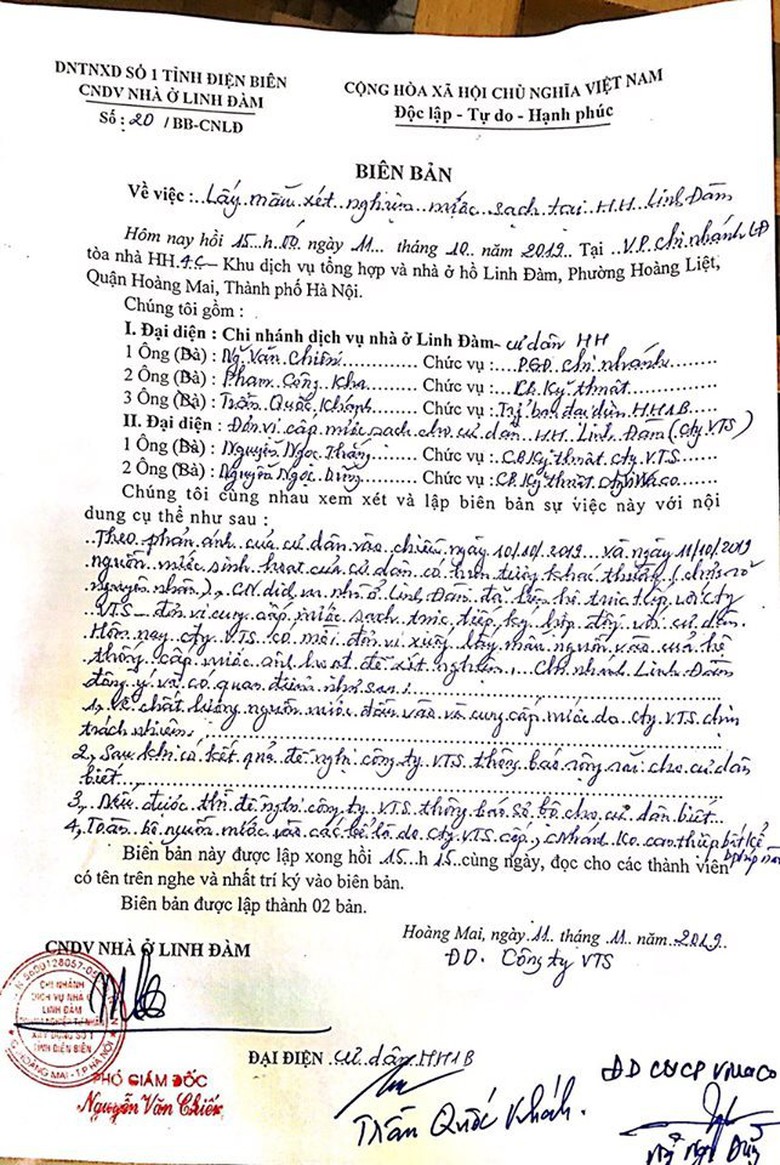 DNTNXD SỐ 1 TỈNH ĐIỆN BIÊN
CNDV NHÀ Ở LINH ĐÀM
Số : 20 / BB-CNLĐ
CỘNG HÒA XÃ HỘI CHỦ NGHĨA VIỆT NAM
Độc lập - Tự do - Hạnh phúc
BIÊN BẢN
Về việc : Lấy mẫu xét nghiệm nước sạch tại HH Linh Đàm
Hôm nay hồi 15 h 00 ngày 11 tháng 10 năm 2019 Tại V.P chi nhánh LĐ
tòa nhà HH 4C – Khu dịch vụ tổng hợp và nhà ở hồ Linh Đàm, Phường Hoàng Liệt,
Quận Hoàng Mai, Thành phố Hà Nội.
Chúng tôi gồm :
I. Đại diện : Chi nhánh dịch vụ nhà ở Linh Đàm - cư dân HH
1 Ông (Bà) : Ng Văn Chiến Chức vụ : PGĐ chi nhánh
2 Ông (Bà) : Phạm Công Kha Chức vụ : CB Kỹ thuật
3 Ông (Bà) : Trần Quốc Khánh Chức vụ : Trg ban đại diện HH1B
II. Đại diện : Đơn vị cấp nước sạch cho cư dân HH Linh Đàm (Cty VTS)
1 Ông (Bà) : Nguyễn Ngọc Thắng Chức vụ : CB Kỹ thuật cty VTS
2 Ông (Bà) : Nguyễn Ngọc Dũng Chức vụ : CB Kỹ thuật cty Viwaco
Chúng tôi cùng nhau xem xét và lập biên bản sự việc này với nội
dung cụ thể như sau :
Theo phản ánh của cư dân vào chiều ngày 10/10/2019 và ngày 11/10/2019
nguồn nước sinh hoạt của cư dân có hiện tượng khác thường (chưa rõ
nguyên nhân), CN dịch vụ nhà ở Linh Đàm đã liên hệ trực tiếp với cty
VTS - đơn vị cung cấp nước sạch trực tiếp ký hợp đồng với cư dân.
Hôm nay cty VTS có mời đơn vị xuống lấy mẫu nguồn vào của hệ
thống cấp nước sinh hoạt để xét nghiệm, Chi nhánh Linh Đàm
đồng ý và có quan điểm như sau :
1, Về chất lượng nguồn nước đầu vào và cung cấp nước do cty VTS chịu
trách nhiệm.
2, Sau khi có kết quả đề nghị công ty VTS thông báo rộng rãi cho cư dân
biết
3, Nếu được thì đề nghị công ty VTS thông báo sơ bộ cho cư dân biết
4, Toàn bộ nguồn nước vào các bể là do cty VTS cấp, C Nhánh ko can thiệp bất kể
Biên bản này được lập xong hồi 15 h 15 cùng ngày, đọc cho các thành viên
có tên trên nghe và nhất trí ký vào biên bản.
Biên bản được lập thành 02 bản.
Hoàng Mai, ngày 11 tháng 11 năm 2019
CNDV NHÀ Ở LINH ĐÀM
ĐD. Công ty VTS
CHI NHÁNH
DỊCH VỤ NHÀ Ở
LINH ĐÀM
DOANH NGHIỆP TƯ NHÂN
XÂY DỰNG SỐ 1
TỈNH ĐIỆN BIÊN
Q. HOÀNG MAI - T.P HÀ NỘI
PHÓ GIÁM ĐỐC
Nguyễn Văn Chiến
ĐẠI ĐIỆN cư dân HH1B
Trần Quốc Khánh.
ĐD CTCP Viwaco